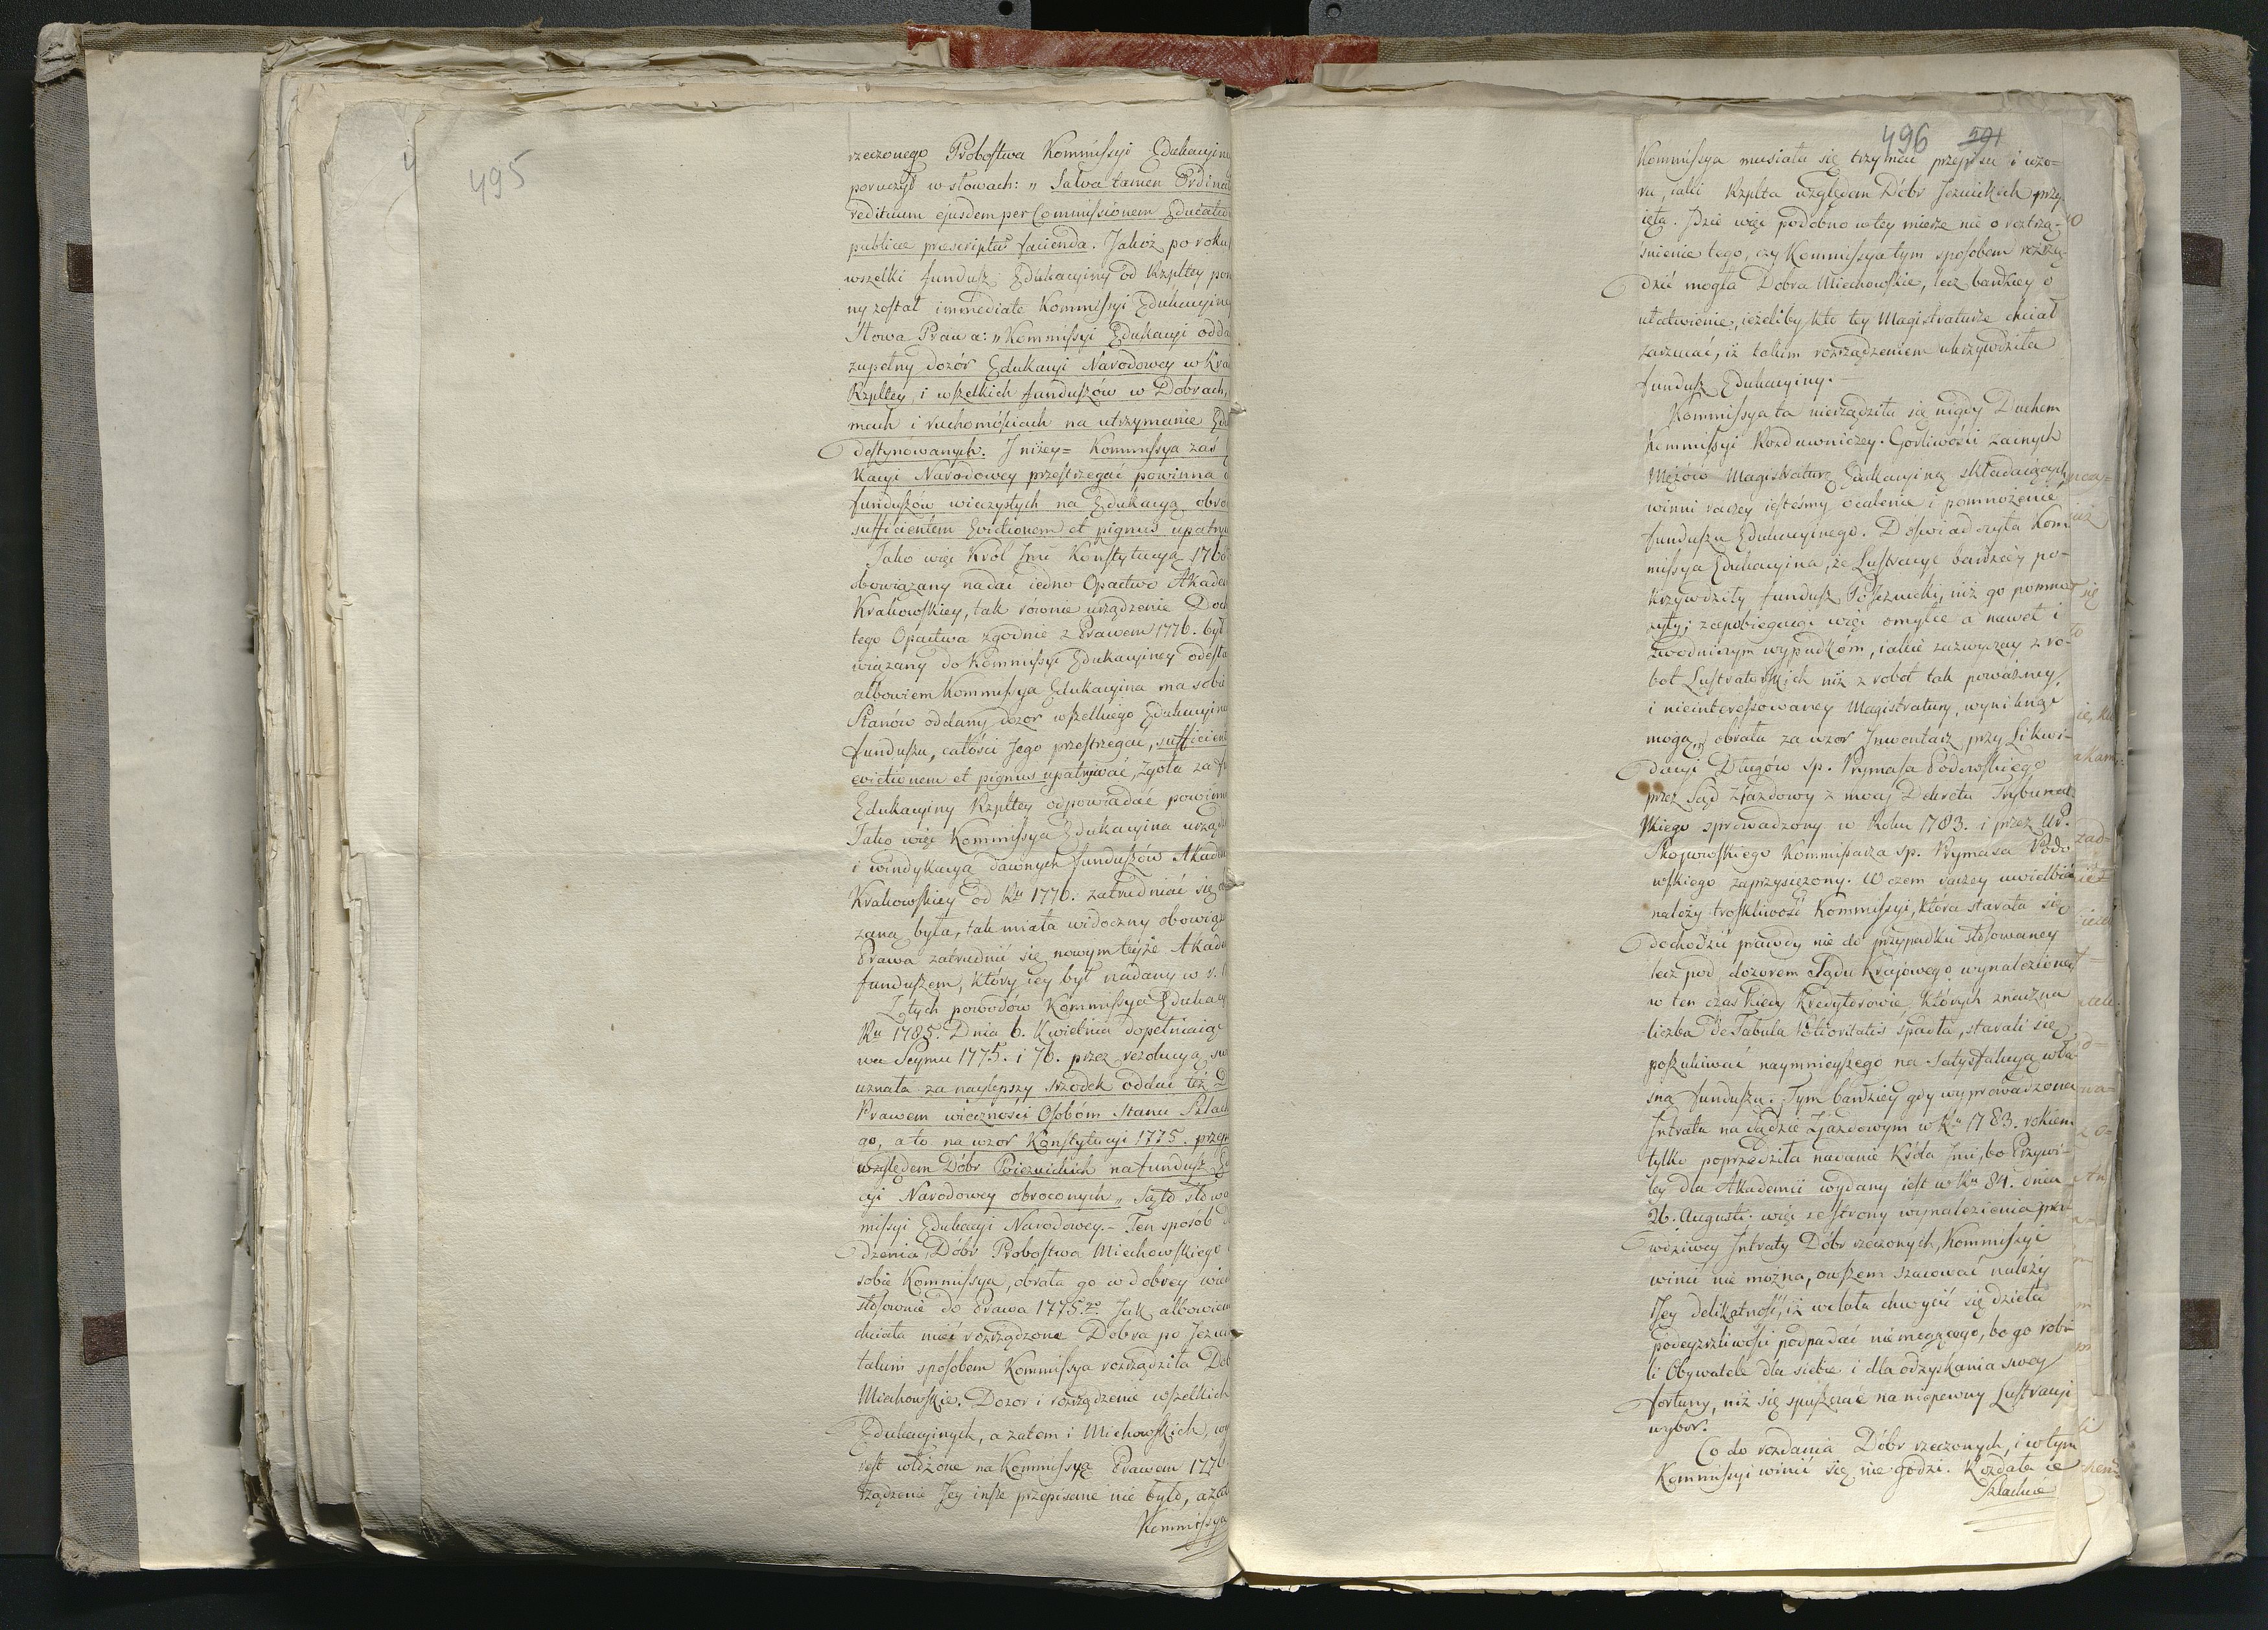 495
rzeczonego Probostwa Kommissyi Edukacyine
poruczył w słowach: „ Salva tamen Ordinat
redituum ejusdem per Commissionem Educatio
publicae praescriptus facienda. Jakoż po roku
wszelki fundusz Edukacyiny od Rzpltey por
ny został immediate Kommissyi Edukacyiney
Słowa Prawa: „ Kommissyi Edukacyi odda
zupełny dozór Edukacyi Narodowey w Kra
Rzpltey, i wszelkich funduszów w Dobrach,
mach i ruchomościach na utrzymanie Edu
destynowanych. J niżey = Kommissya zaś
kacyi Narodowey przestrzegać powinna
funduszów wieczystych na Edukacyą obro
sufficientem Evictionem et pignus upatry
Jako więc Król Jmć Konstytucyą 1768
obowiązany nadać iedno Opactwo Akade
Krakowskiey, tak rownie urządzenie Doch
tego Opactwa zgodnie z Prawem 1776. był
wiązany do Kommissyi Edukacyiney odesła
albowiem Kommissya Edukacyina ma sobie
Stanów oddany dozor wszelkiego Edukacyine
funduszu, całości Jego przestrzegać, sufficient
evictionem et pignus upatrywać, zgoła za fu
Edukacyiny Rzpltey odpowiadać powinn
Jako więc Kommissya Edukacyina urząd
i windykacyą dawnych funduszów Akade
Krakowskiey od Ru 1776. zatrudniać się
zana była, tak miała widoczny obowiąz
Prawa zatrudnić się nowym teyże Akade
funduszem, który iey był nadany w r.
Z tych powodów Kommissya Edukacy
Ru 1785. Dnia 6. Kwietnia dopełniaiąc
wa Seymu 1775. i 76. przez rezolucyą sw
uznała za naylepszy srzodek oddać też D
Prawem wieczności Osobóm Stanu Szlach
go, a to na wzor Konstytucyi 1775. przep
względem Dóbr Poiezuickich na fundusz Ed
cyi Narodowey obroconych „ Są to słowa
missyi Edukacyi Narodowey. – Ten sposób
dzenia Dóbr Probostwa Miechowskiego
sobie Kommissya, obrała go w dobrey wier
stosownie do Prawa 1775.go Jak albowiem
chciała mieć rozrządzone Dobra po Jezui
takim sposobem Kommissya rozrządziła Dob
Miechowskie. Dozor i rozrządzenie wszelkich
Edukacyinych, a zatem i Miechowskich, wy
iest włożone na Kommissyą Prawem 1776
rządzenie Jey insze przepisane nie było, a zat
Kommissya
496 501
Kommissya musiała się trzymać przepisu i wzo=
ru, iaki Rzplta względem Dóbr Jezuickich przy
ięła. Jdzie więc podobno w tey mierze nie o roztrzą=
śnienie tego, czy Kommissya tym sposobem rozrzą=
dzić mogła Dobra Miechowskie, lecz bardziey o
ułatwienie, ieżeliby kto tey Magistraturze chciał
zarzucać, iż takim rozrządzeniem ukrzywdziła
fundusz Edukacyiny. –
Kommissya ta nierządziła się nigdy Duchem
Kommissyi Rozdawniczey. Gorliwości zacnych
Mężów Magistraturę Edukacyiną składaiących
winni raczey iesteśmy ocalenie i pomnożenie
funduszu Edukacyinego. Doświadczyła Kom
missya Edukacyina, że Lustracye bardziey po=
krzywdziły fundusz PoJezuicki, niż go pomno
żyły; zapobiegaiąc więc omyłce a nawet i
zwodniczym wypadkóm, iakie zazwyczay z ro=
bot Lustratorskich niż z robot tak poważney,
i nieinteressowaney Magistratury, wyniknąć
mogą, obrała za wzor Jnwentarz przy Likwi=
dacyi Długów sp. Prymasa Podoskiego
przez Sąd Zjazdowy z mocy Dekretu Trybunal
skiego sprowadzony w Roku 1783. i przez Ur.
Skojowskiego Kommissarza sp. Prymasa Podo
wskiego zaprzysiężony. W czem raczey uwielbiać
należy troskliwość Kommissyi, która starała się
dochodzić prawdy nie do przypadku stosowaney
lecz pod dozorem Sądu Krajowego wynalezioney
w ten czas kiedy Kredytorowie, których znaczna
liczba de Tabula Potioritatis spadła, starali się
poszukiwać naymnieyszego na Satysfakcyą wła=
sną funduszu. Tym bardziey gdy wyprowadzona
Jntrata na Sądzie Zjazdowym w Ru 1783. rokiem
tylko poprzedziła nadanie Króla Jmci, bo Przywi=
ley dla Akademii wydany iest w Ru 84. dnia
26. Augusti. więc ze strony wynalezienia praw
wdziwey Jntraty Dóbr rzeczonych, Kommissyi
winić nie można, owszem szacować należy
Jey delikatność, iż wolała chwycić się dzieła
podeyrzliwości podpadać niemogącego, bo go robi
li Obywatele dla siebie i dla odzyskania swey
fortuny, niż się spuszczać na niepewny Lustracyi
wybor.
Co do rozdania Dóbr rzeczonych, i w tym
Kommissyi winić się nie godzi. Rozdała ie
Szlachcie